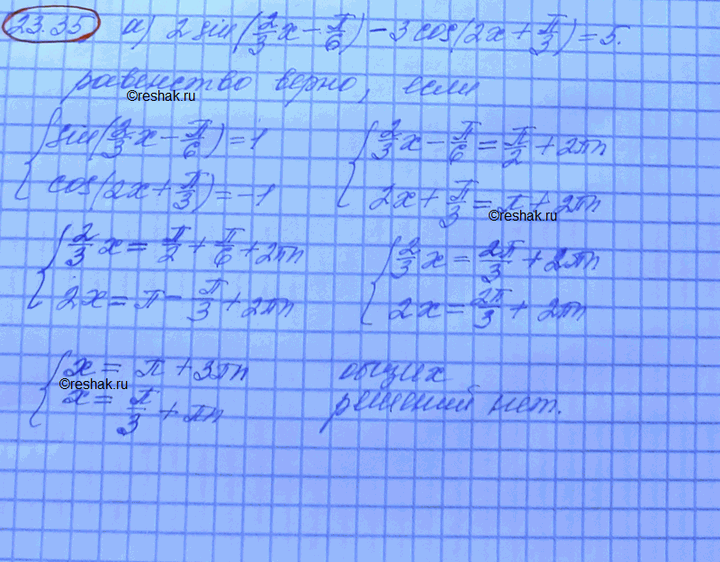 23.35 а) 2 sin(2/3 x − π/6) − 3 cos(2x + π/3) = 5.
равенство верно, если
©reshak.ru
{ sin(2/3 x − π/6) = 1
cos(2x + π/3) = −1
{ 2/3 x − π/6 = π/2 + 2πn
2x + π/3 = π + 2πn
©reshak.ru
{ 2/3 x = π/2 + π/6 + 2πn
2x = π − π/3 + 2πn
{ 2/3 x = 2π/3 + 2πn
2x = 2π/3 + 2πn
{ x = π + 3πn
©reshak.ru
x = π/3 + πn
общих
решений нет.